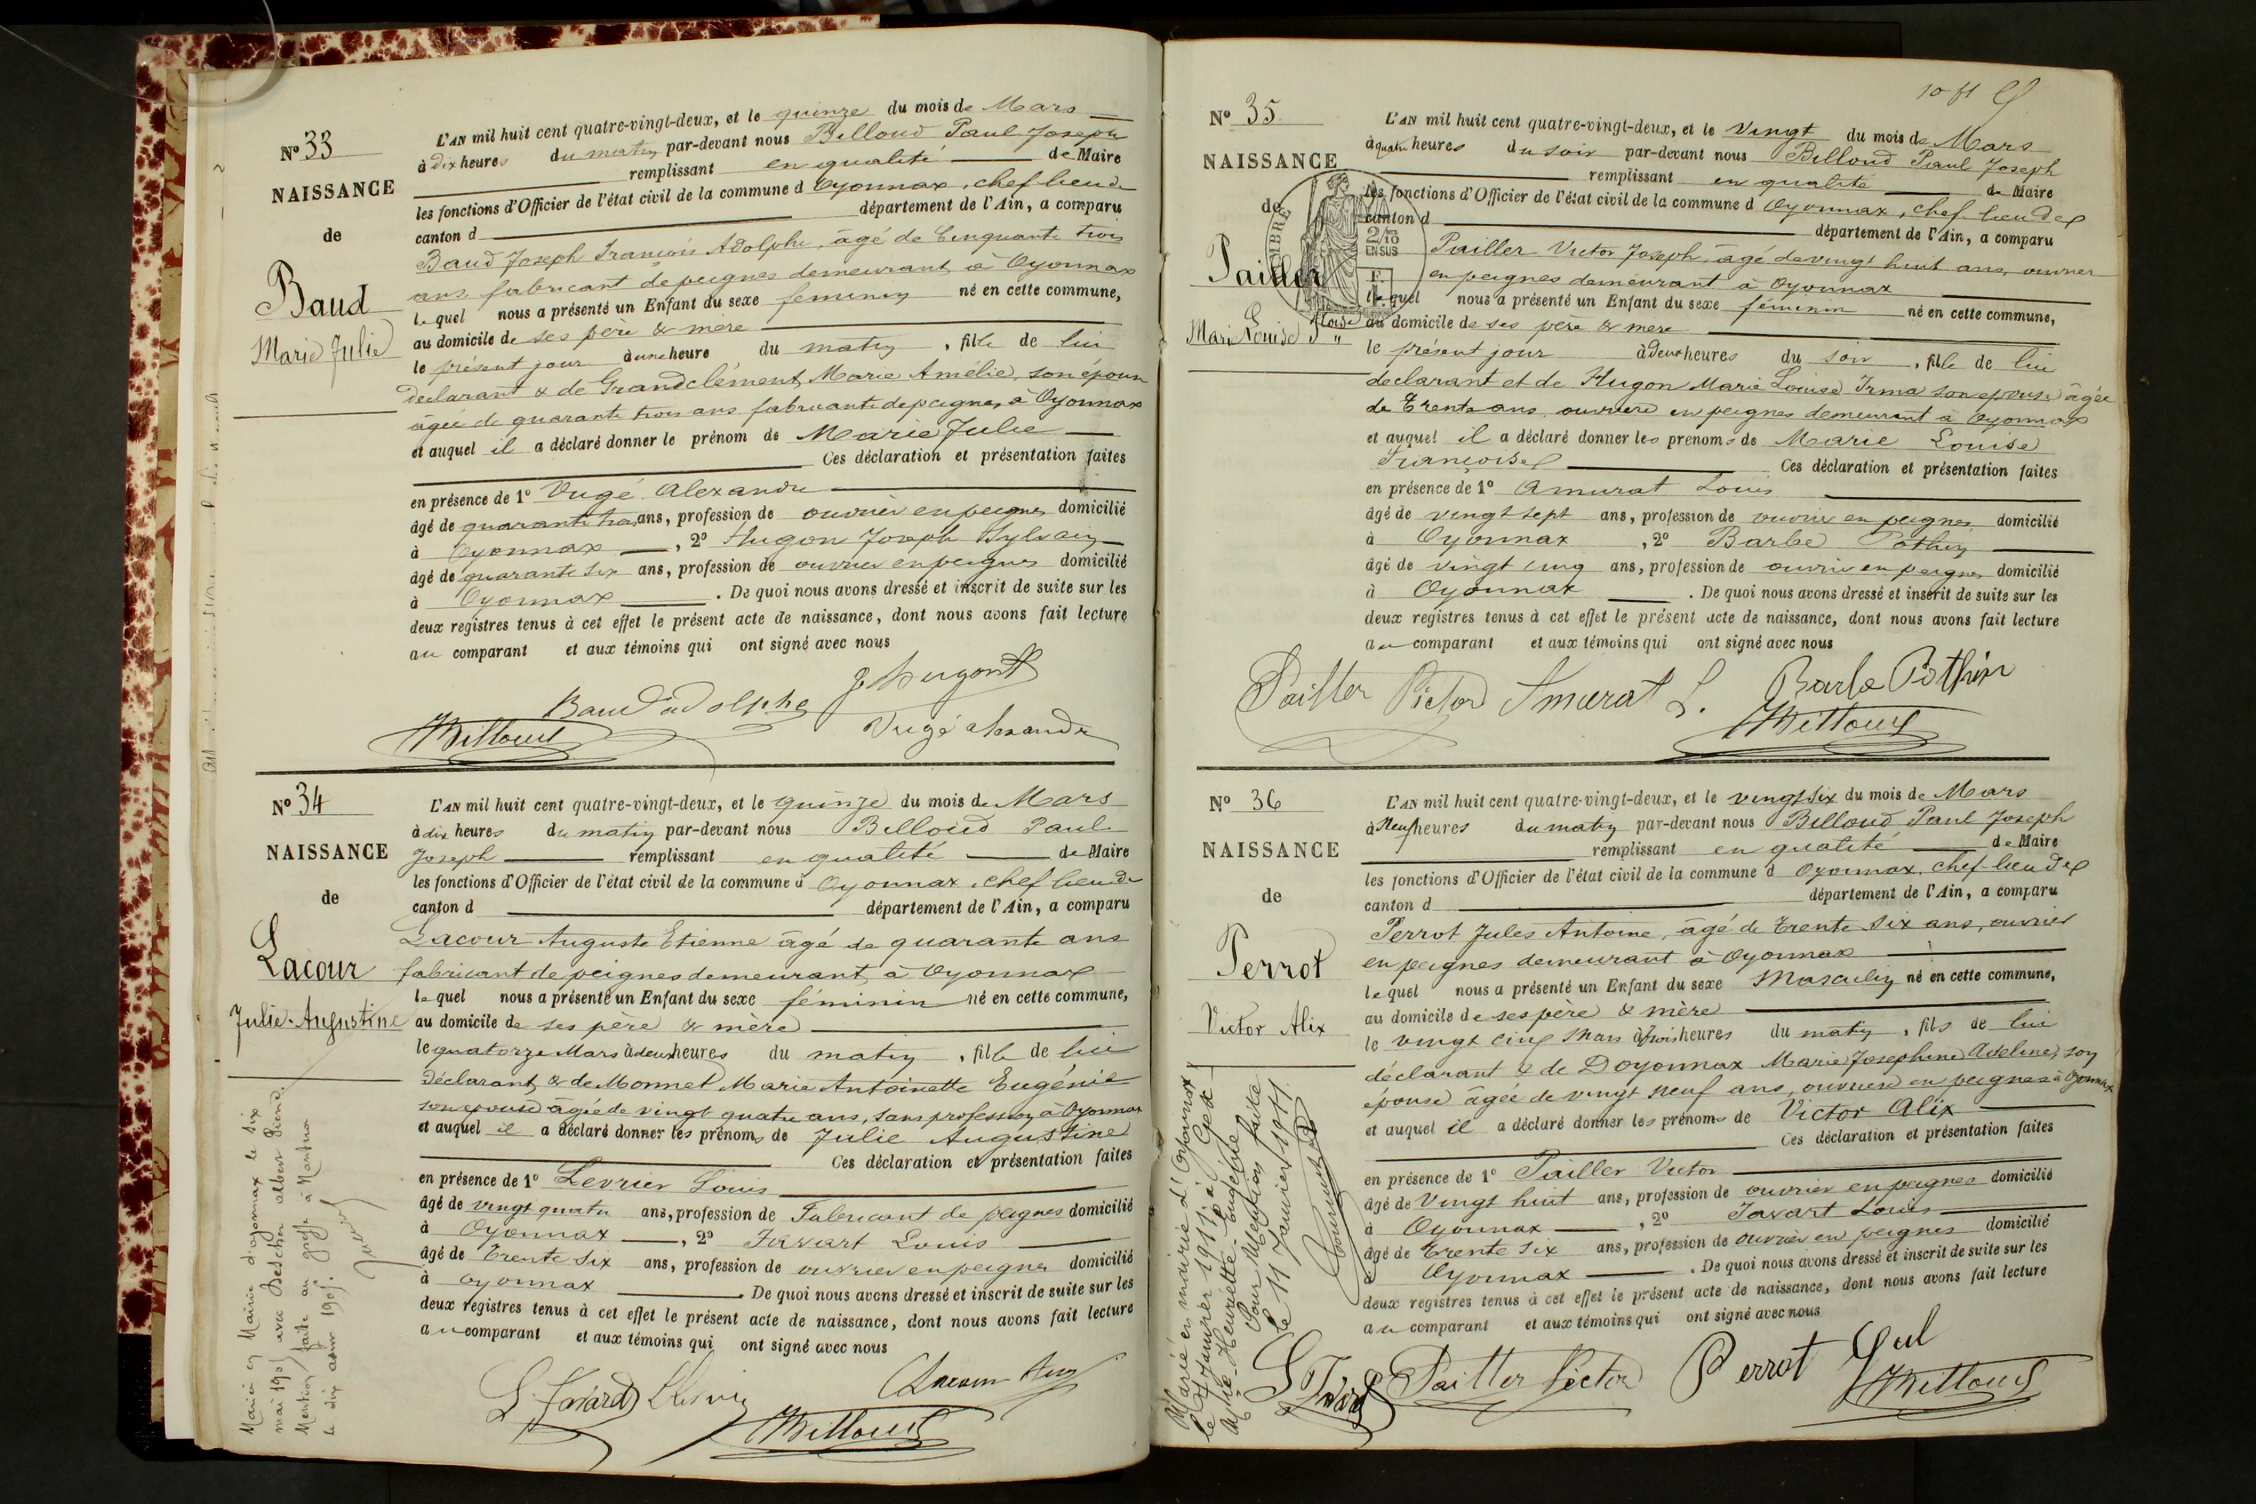 N° 33
NAISSANCE
de
Baud
Marie Julie
L'AN mil huit cent quatre-vingt-deux, et le quinze du mois de Mars
à dix heures du matin par-devant nous Billoud Paul Joseph
remplissant en qualité de Maire
les fonctions d'Officier de l'état civil de la commune d Oyonnax, chef lieu de
canton d département de l'Ain, a comparu
Baud Joseph François Adolphe, âgé de Cinquante trois
ans, fabricant de peignes demeurant à Oyonnax
lequel nous a présenté un Enfant du sexe feminin né en cette commune,
au domicile de ses père & mère
le présent jour à une heure du matin, fille de lui
déclarant & de Grandclément Marie Amélie, son épouse
âgée de quarante trois ans fabricante de peignes, à Oyonnax
et auquel il a déclaré donner le prénom de Marie Julie
Ces déclaration et présentation faites
en présence de 1° Vugé Alexandre
âgé de quarante trois ans, profession de ouvrier en peignes domicilié
à Oyonnax, 2° Hugon Joseph Sylvain
âgé de quarante six ans, profession de ouvrier en peignes domicilié
à Oyonnax. De quoi nous avons dressé et inscrit de suite sur les
deux registres tenus à cet effet le présent acte de naissance, dont nous avons fait lecture
au comparant et aux témoins qui ont signé avec nous
J Hugon
Baud adolphe
Billoud
Vugé alexandre
N° 34
NAISSANCE
de
Lacour
Julie-Augustine
L'AN mil huit cent quatre-vingt-deux, et le quinze du mois de Mars
à dix heures du matin par-devant nous Billoud Paul
Joseph remplissant en qualité de Maire
les fonctions d'Officier de l'état civil de la commune d Oyonnax, chef lieu de
canton d département de l'Ain, a comparu
Lacour Auguste Etienne âgé de quarante ans
fabricant de peignes demeurant à Oyonnax
lequel nous a présenté un Enfant du sexe féminin né en cette commune,
au domicile de ses père & mère
le quatorze Mars à deux heures du matin, fille de lui
déclarant & de Monnet Marie Antoinette Eugénie
son epouse âgée de vingt quatre ans, sans profession à Oyonnax
et auquel il a déclaré donner les prénoms de Julie Augustine
Ces déclaration et présentation faites
en présence de 1° Levrier Louis
âgé de vingt quatre ans, profession de Fabricant de peignes domicilié
à Oyonnax, 2° Favart Louis
âgé de Trente six ans, profession de ouvrier en peignes domicilié
à Oyonnax. De quoi nous avons dressé et inscrit de suite sur les
deux registres tenus à cet effet le présent acte de naissance, dont nous avons fait lecture
au comparant et aux témoins qui ont signé avec nous
Lacour Aug
Billoud
Mariée en Mairie d'oyonnax le six
mai 190 avec albert Pierre.
Mention faite au greffe à Nantua
le dix 190
N° 35
NAISSANCE
de
Pailler
Marie Louise Fçoise
L'AN mil huit cent quatre-vingt-deux, et le vingt du mois de Mars
à quatre heures du soir par-devant nous Billoud Paul Joseph
remplissant en qualité de Maire
les fonctions d'Officier de l'état civil de la commune d Oyonnax, chef-lieu de
canton d département de l'Ain, a comparu
Pailler Victor Joseph, âgé de vingt huit ans, ouvrier
en peignes demeurant à Oyonnax
lequel nous a présenté un Enfant du sexe féminin né en cette commune,
au domicile de ses père & mère
le présent jour à deux heures du soir, fille de lui
déclarant et de Hugon Marie Louise Irma son epouse âgée
de Trente ans ouvrière en peignes demeurant à Oyonnax
et auquel il a déclaré donner les prénoms de Marie Louise
Françoise Ces déclaration et présentation faites
en présence de 1° Amurat Louis
âgé de vingt sept ans, profession de ouvrier en peignes domicilié
à Oyonnax, 2° Barbe Pothin
âgé de vingt cinq ans, profession de ouvrier en peignes domicilié
à Oyonnax. De quoi nous avons dressé et inscrit de suite sur les
deux registres tenus à cet effet le présent acte de naissance, dont nous avons fait lecture
au comparant et aux témoins qui ont signé avec nous
Pailler Victor Amurat L. Barbe Pothin
Billoud
N° 36
NAISSANCE
de
Perrot
Victor Alix
L'AN mil huit cent quatre-vingt-deux, et le vingt six du mois de Mars
à Neuf heures du matin par-devant nous Billoud Paul Joseph
remplissant en qualité de Maire
les fonctions d'Officier de l'état civil de la commune d Oyonnax, chef-lieu de
canton d département de l'Ain, a comparu
Perrot Jules Antoine, âgé de Trente six ans, ouvrier
en peignes demeurant à Oyonnax
lequel nous a présenté un Enfant du sexe Masculin né en cette commune,
au domicile de ses père & mère
le vingt cinq Mars à trois heures du matin, fils de lui
déclarant & de Doyonnax Marie Josephine Adeline, son
épouse âgée de vingt neuf ans, ouvrière en peignes à Oyonnax
et auquel il a déclaré donner les prénoms de Victor Alix
Ces déclaration et présentation faites
en présence de 1° Pailler Victor
âgé de Vingt huit ans, profession de ouvrier en peignes domicilié
à Oyonnax, 2° Favart Louis
âgé de Trente six ans, profession de ouvrier en peignes domicilié
à Oyonnax. De quoi nous avons dressé et inscrit de suite sur les
deux registres tenus à cet effet le présent acte de naissance, dont nous avons fait lecture
au comparant et aux témoins qui ont signé avec nous
Pailler Victor Perrot Jul
Billoud
Marié en mairie d'Oyonnax
le Janvier 1911, à
Marie-Henriette-Eugénie
Pour Mention faite
le 11 Janvier 1911